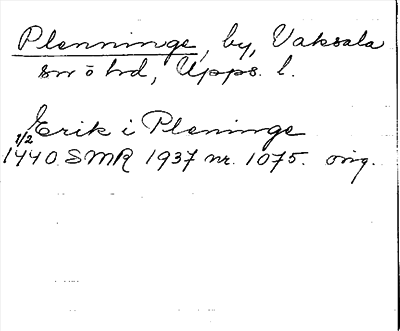 Plenninge, by, Vaksala
sn o hd, Upps. l.
Erik i Pleninge
1/2
1440 SMR 1937 nr. 1075. orig.